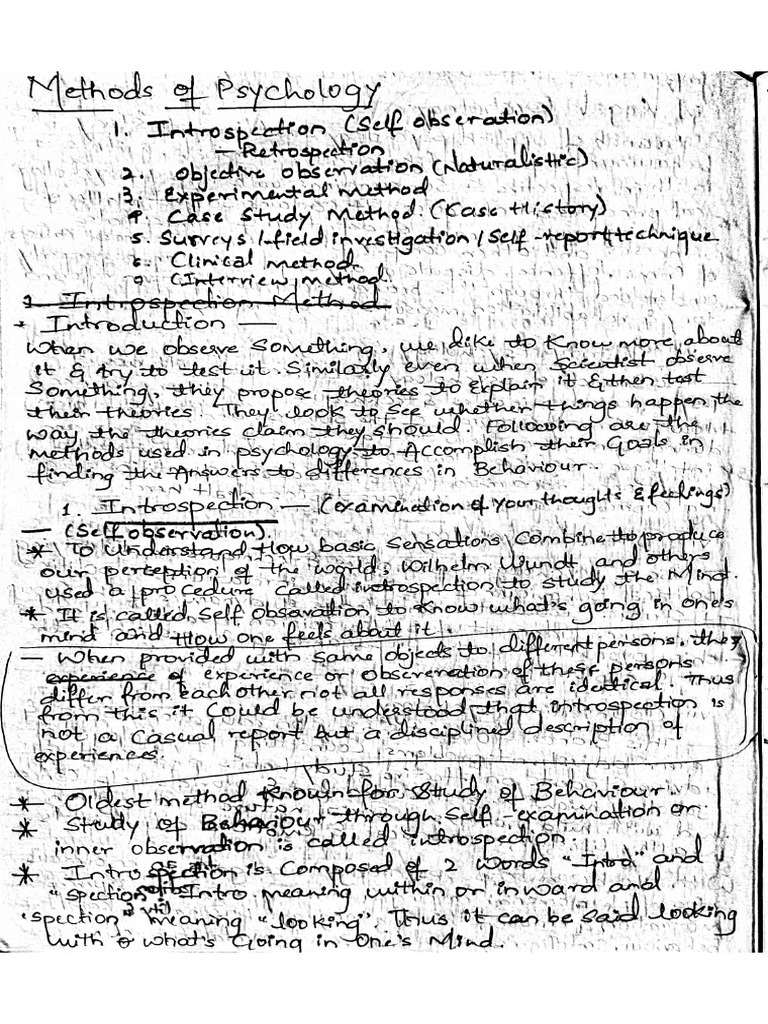 Methods of Psychology
1. Introspection (Self obseration)
— Retrospection
2. Objective observation (Naturalistic)
3. Experimental method
4. Case Study Method. (Case History)
5. Surveys / field investigation / Self-report technique
6. Clinical method.
(Interview method.
1 Introspection Method
* Introduction —
When we observe something, we like to know more about
it & try to test it. Similarly even when Scientist observe
Something, they propose theories to Explain it & then test
their theories. They look to see whether things happen the
way the theories claim they should. Following are the
methods used in psychology to Accomplish their Goals in
finding the Answers to differences in Behaviour.
1. Introspection — (examination of your thoughts & feelings)
— (Self observation).
* To understand How basic sensations Combine to produce
our perception of the world, Wilhelm Wundt and others
used a procedure called introspection to study the Mind.
* It is called Self Obsavation to know what's going in one's
mind and How one feels about it.
— When provided with same objects to different persons, they
experience of experience or obsereration of these persons
differ from each other not all responses are identical. Thus
from this it Could be understood that introspection is
not a Casual report but a disciplined description of
experiences.
* Oldest method Known for Study of Behaviour.
* Study of Behaviour through Self-examination or
inner observation is called introspection.
* Introspection is Composed of 2 words "Intro" and
"spection" Intro meaning within or inward and
"spection" meaning "looking". Thus it can be said looking
with o what's Going in One's Mind.